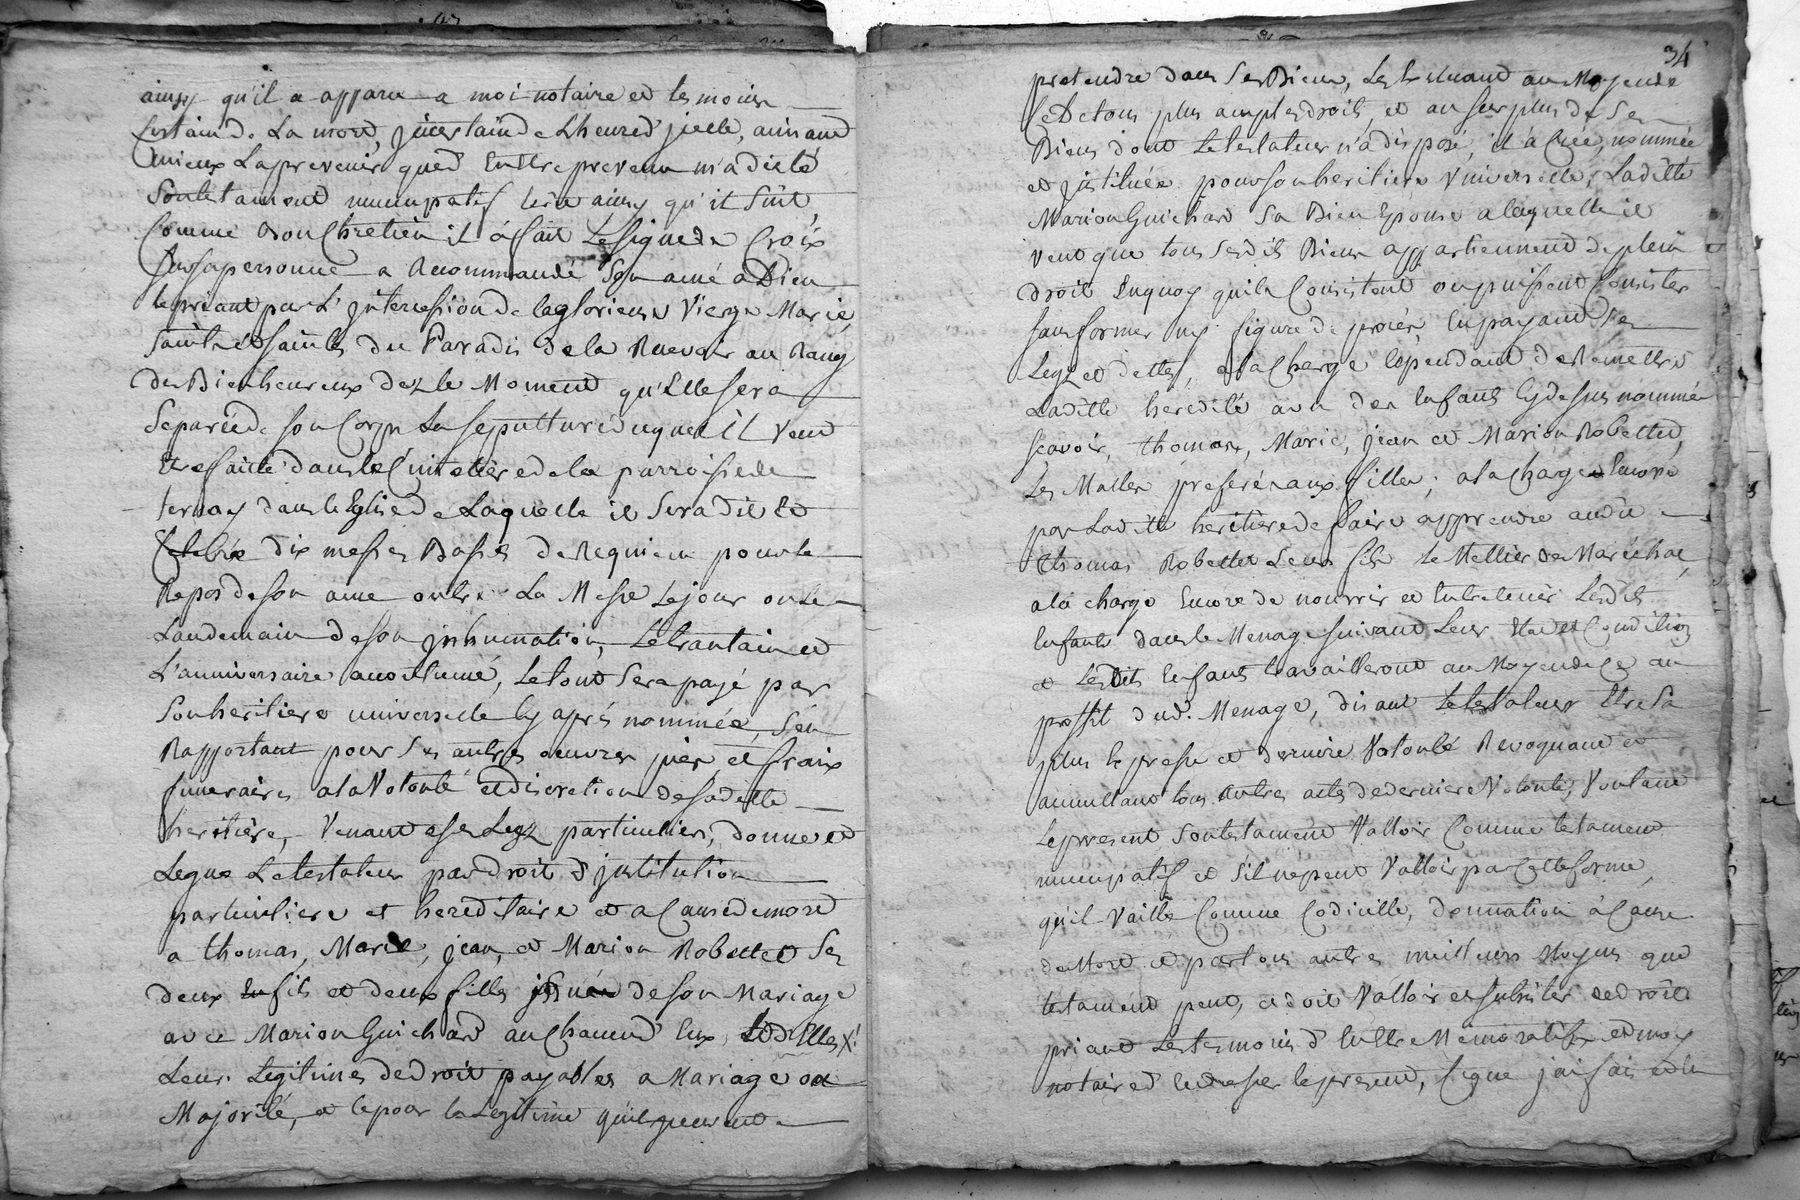 ainsy qu'il a apparu a moi notaire et temoins
Certain de La mort, jncertain de Lheure d'jcelle, aimant
mieux La prevenir que d'Enttre prevenu m'a dicté
Son testament nuncupatif Ecrit ainsy qu'il Suit,
Comme bon Chretien il â fait Le signe de La Croix
Sur sa personne a Recommandé Son ame a Dieu
le priant par L'jntercession de la glorieuse Vierge Marie
Saints et saintes du Paradis de la Recevoir au Rang
des Bienheureux dez le Moment qu'Elle sera
Separée de son Corps La sepulture duquel il Veut
Etre faitte dans le Cimetiere de la parroisse de
ternay dans l'Eglise de Laquelle il Sera dit Et
Celebré dix messes Basses de Requiem pour le
Repos de son ame outre La Messe Le jour ou le
Landemain de son jnhumation, Le trantain et
L'anniversaire accoutumé, Le tout Sera payé par
Son heritiere universelle Cy aprés nommée, S'en
Rapportant pour Ses autres oeuvres pies, et fraix
funeraires a la Volonté et discretion de sadette
heritière, Venant a ses Legz particuliers, donne et
Legue Le testateur par droit d'jnstitution
particuliere et hereditaire et a Cause de mort
a thomas, Marie, jean, et Marion Robettet Ses
deux fils et deux filles jssues de son Mariage
avec Marion Guichard a un Chacun d'Eux, Et d'Elles X!
Leur Legitimes de droit payables a Mariage ou
Majorité, et ce pour la Legitime qu'ils peuvent
34
pretendre dans Ses Biens, Les Excluant au Moyen de
Ce De tous plus amples droits, et au surplus de Ses
Biens dont Le testateur n'a disposé, il â Créé, nommée
et jnstituée pour son heritiere Universelle, Laditte
Marion Guichard Sa Bien Epouse a laquelle il
Veut que tous Sesdits Biens appartiennent de plein
droit Enquoy qu'ils Consistent ou puissent Consister
sans former ny figure de procès, En payant Ses
Legz et dettes, a la Charge Cependant de Remettre
Laditte heredité a un des Enfants Cy dessus nommés
scavoir, thomas, Marie, jean et Marion Robettet,
Les Malles preferés aux filles; a la Charge Encore
par Laditte heritiere de faire apprendre audit
thomas Robettet Leur fils Le Mettier de Maréchal,
a la charge Encore de nourrir et Entretenir Lesdits
Enfants dans le Menage suivant Leur Etat et Condition
et Lesdits Enfants travailleront au Moyen de Ce au
proffit dud. Menage, disant Le testateur Etre Sa
plus Expresse et derniere Volonté Revoquant et
annullant tous autres actes de derniere Volonté, Voulant
Le present Son testament Valloir Comme testament
nuncupatif et S'il ne peut Valloir par Cette forme,
qu'il Vaille Comme Codicille, donnation â Cause
de Mort et par tous autres meilleurs Moyens que
testament peut, et doit Valloir et subsister de droit
priant Les temoins d'Enttre Memoratifs et moy
notaire d'En dresser le present, Ce que j'ai fais et lu